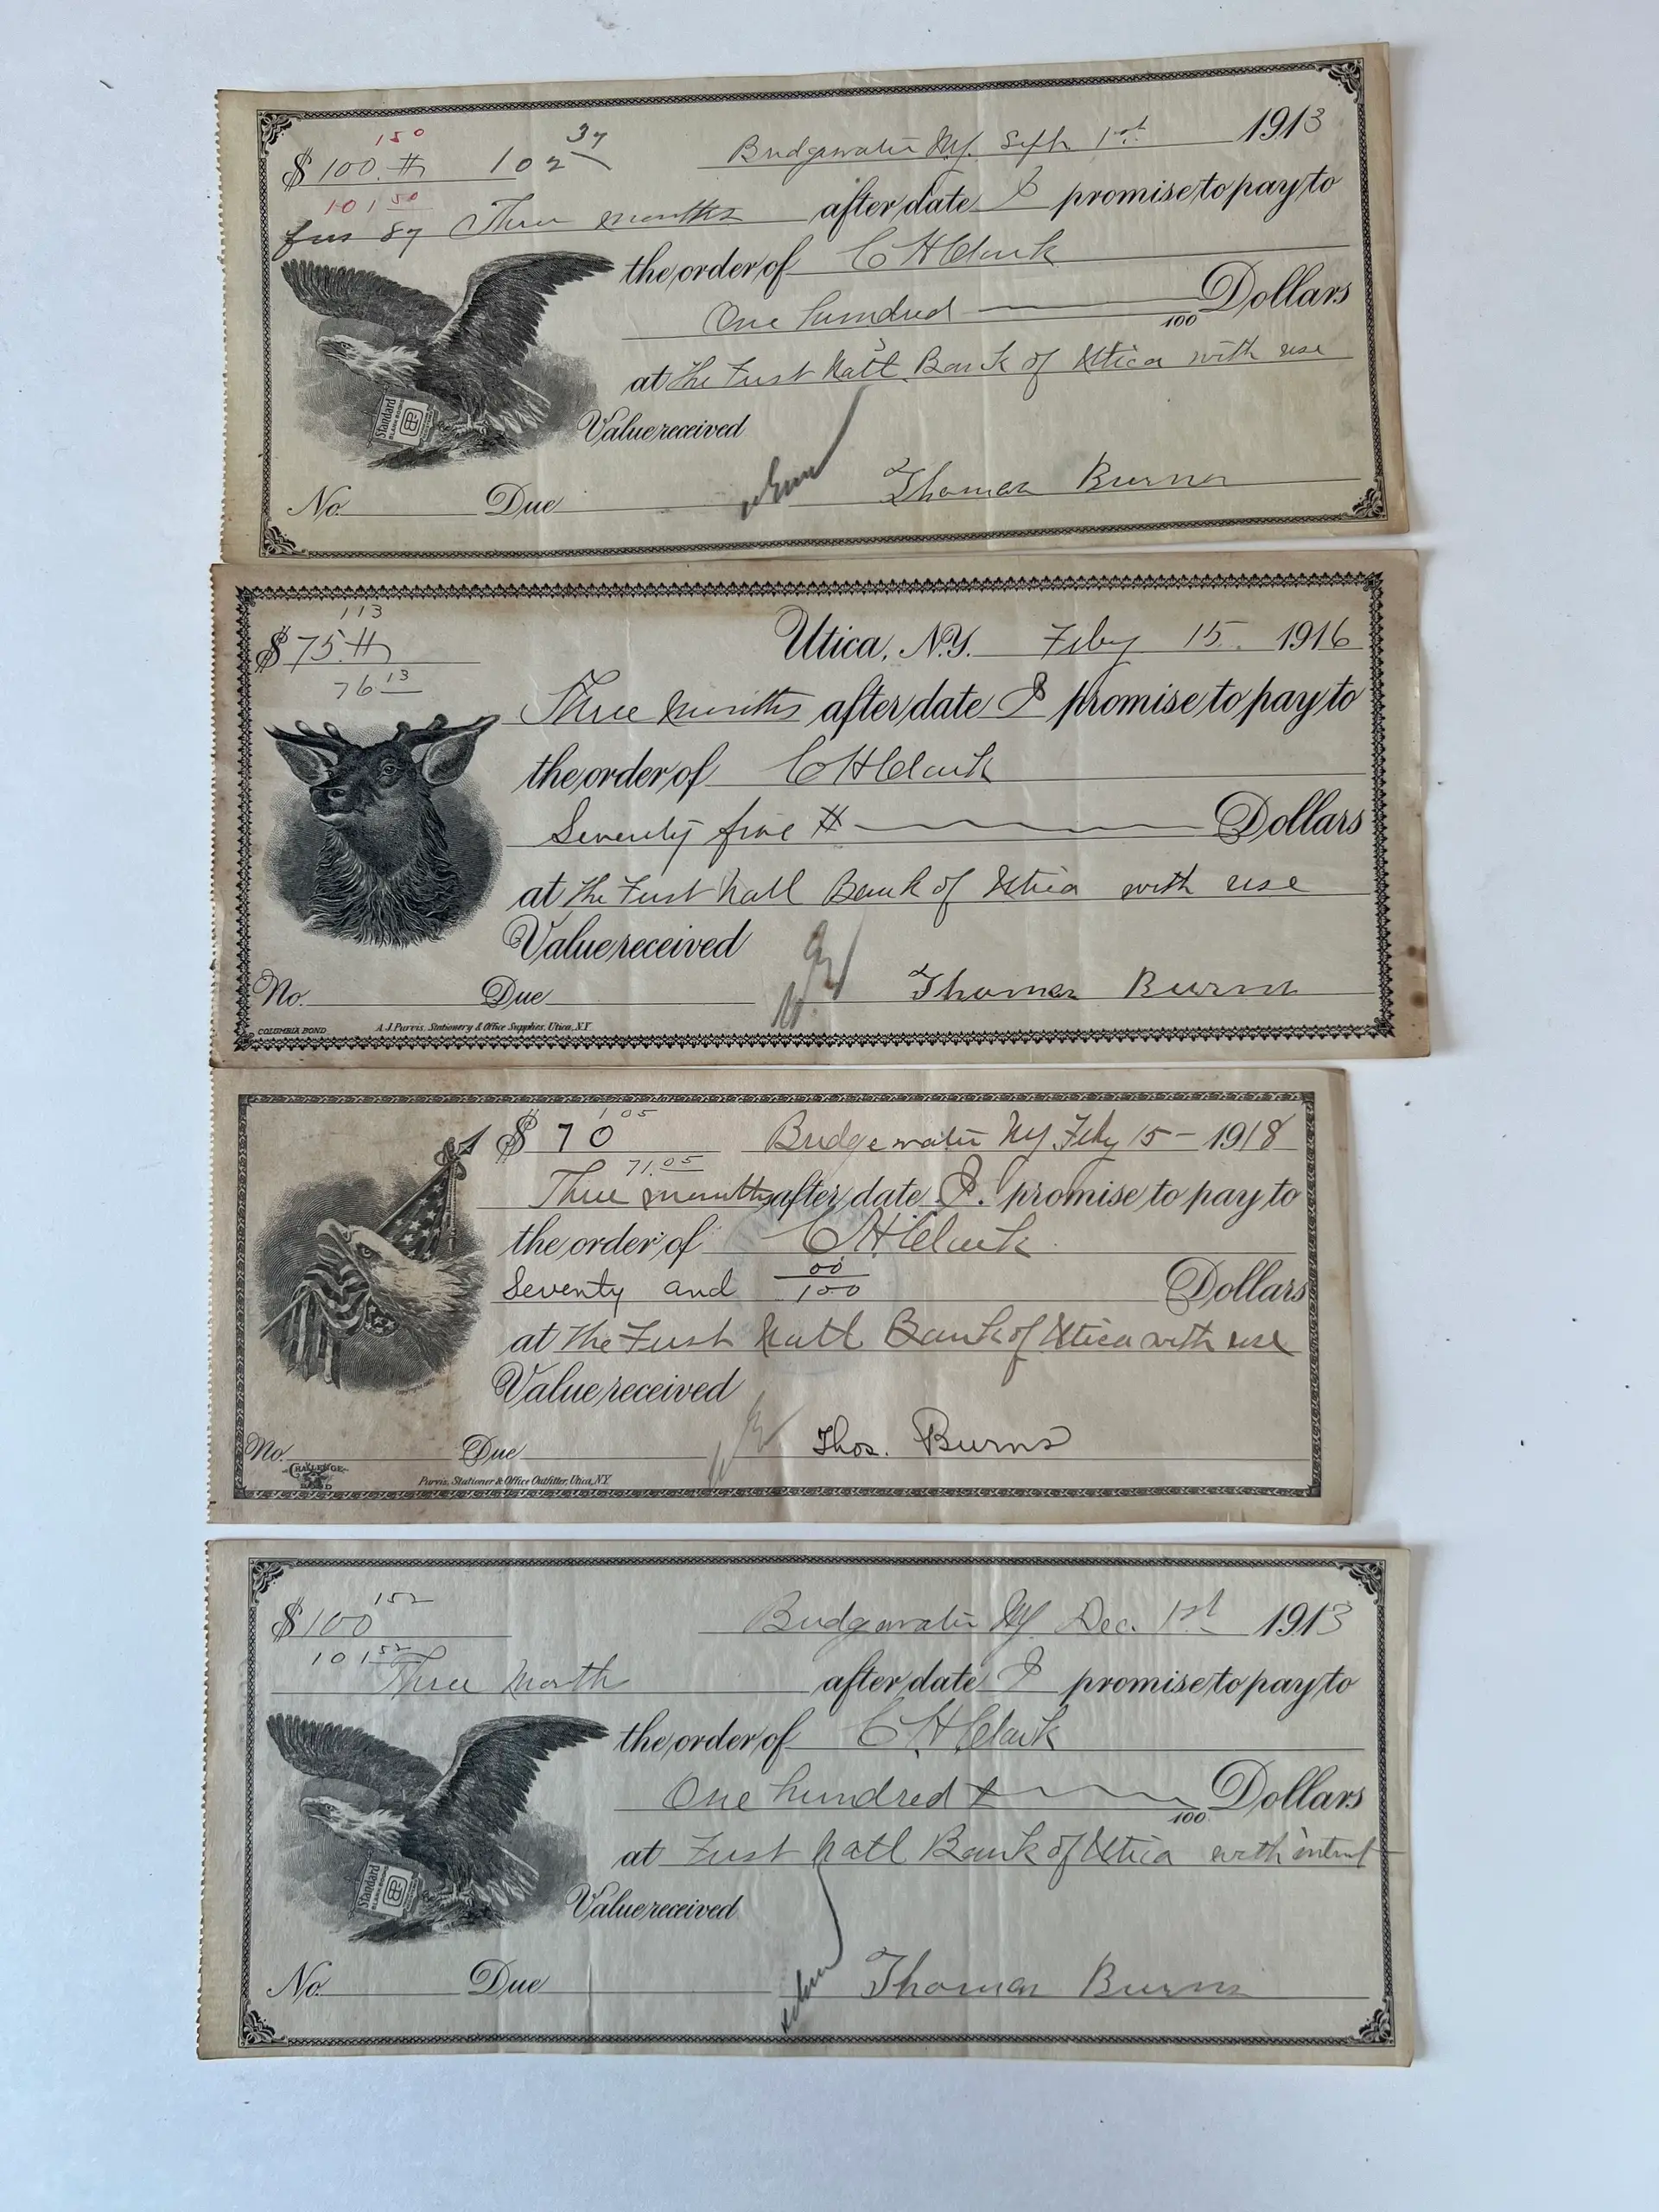 150
$100.# 102 37
Bridgewater NY. Sept 1st 1913
101 50
87 Three months after date I promise to pay to
the order of C H Clark
One hundred 100 Dollars
at The First Natl. Bank of Utica with use
Standard
Value received
No. Due Thomas Burns
113
$75.# Utica, N.Y. Feby 15. 1916
76 13
Three months after date I promise to pay to
the order of C H Clark
Seventy five # Dollars
at The First Natl Bank of Utica with use
Value received
No. Due Thomas Burns
COLUMBIA BOND A. J. Purvis, Stationery & Office Supplies, Utica, N.Y.
1 05
$ 70 Bridgewater NY Feby 15 - 1918
71.05
Three months after date I. promise to pay to
the order of C. H Clark
Seventy and 00/100 Dollars
at The First Natl Bank of Utica with use
Value received
No. Due Thos. Burns
CHALLENGE BOND Purvis, Stationer & Office Outfitter, Utica, N.Y.
152
$100 Bridgewater NY. Dec. 1st 1913
101 52
Three Month after date I promise to pay to
the order of C. H Clark
One hundred 100 Dollars
at First Natl Bank of Utica with
Standard
Value received
No. Due Thomas Burns